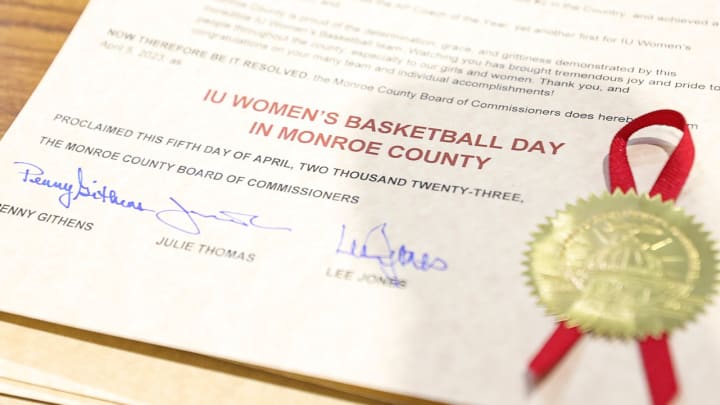 the AP Coach of the Year, yet another first for IU Women's
#1 in the Country, and achieved a
Monroe County is proud of the determination, grace, and grittiness demonstrated by this
IU Women's Basketball team. Watching you has brought tremendous joy and pride to
people throughout the county, especially to our girls and women. Thank you, and
congratulations on your many team and individual accomplishments!
NOW THEREFORE BE IT RESOLVED, the Monroe County Board of Commissioners does hereby
April 5, 2023, as
IU WOMEN'S BASKETBALL DAY
IN MONROE COUNTY
PROCLAIMED THIS FIFTH DAY OF APRIL, TWO THOUSAND TWENTY-THREE,
THE MONROE COUNTY BOARD OF COMMISSIONERS
Penny Githens
Lee Jones
PENNY GITHENS
JULIE THOMAS
LEE JONES